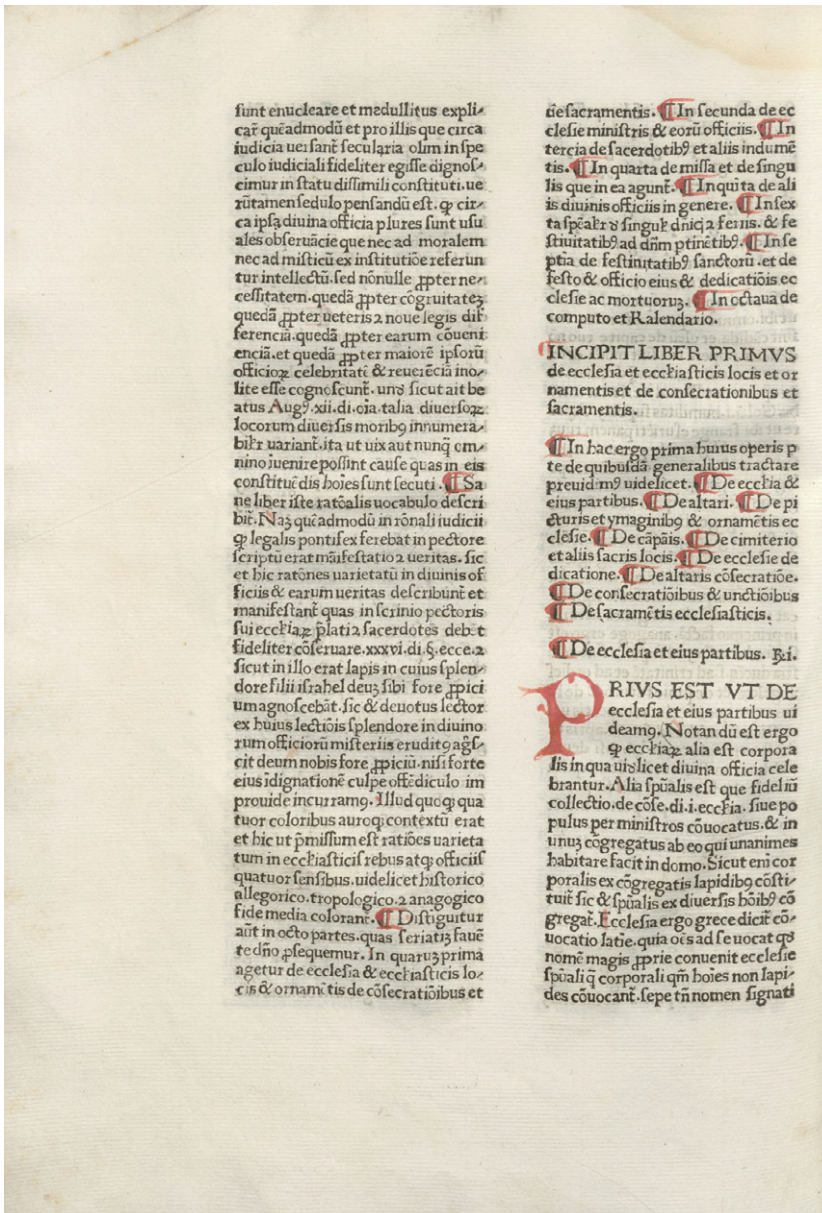 sunt enucleare et medullitus expli⸗
car̃ quēadmodū et pro illis que circa
iudicia uersant̃ secularia olim in spe
culo iudiciali fideliter egisse dignos⸗
cimur in statu dissimili constituti. ue
rūtamen sedulo pensandū est. ꝙ cir⸗
ca ipsa diuina officia plures sunt usu
ales obseruācie que nec ad moralem
nec ad misticū ex institutiōe referun
tur intellectū. sed nōnulle ꝓpter ne⸗
cessitatem. quedā ꝓpter cōgruitateꝫ
quedā ꝓpter ueteris ⁊ noue legis dif
ferenciā. quedā ꝓpter earum cōueni
enciā. et quedā ꝓpter maiorē ipsorū
officioꝝ celebritatē & reuerēciā ino⸗
lite esse cognoscunt̃. unð sicut ait be
atus Augꝯ. xii. di. oīa. talia diuersoꝝ
locorum diuersis moribꝯ innumera⸗
bilr̃ uariant̃. ita ut uix aut nunq̃ om⸗
nino īuenire possint cause quas in eis
constituēdis hoīes sunt secuti. ¶ Sa
ne liber iste ratōalis uocabulo descri
bit̃. Naꝫ quēadmodū in rōnali iudicii
ꝙ legalis pontifex ferebat in pectore
scriptū erat māifestatio ⁊ ueritas. sic
et hic ratōnes uarietatū in diuinis of
ficiis & earum ueritas describunt̃ et
manifestant̃ quas in scrinio pectoris
sui eccl̃iaꝝ p̃lati ⁊ sacerdotes debēt
fideliter cōseruare. xxxvi. di. §. ecce. ⁊
sicut in illo erat lapis in cuius splen⸗
dore filii israhel deuꝫ sibi fore ꝓpici
um agnoscebāt. sic & deuotus lector
ex huius lectiōis splendore in diuino
rum officiorū misteriis eruditꝯ ag̃s⸗
cit deum nobis fore ꝓpiciū. nisi forte
eius īdignationē culpe offēdiculo im
prouide incurramꝯ. Illud quoqꝫ qua
tuor coloribus auroqꝫ contextū erat
et hic ut p̃missum est ratiōes uarieta
tum in eccl̃iasticis rebus atqꝫ officiis
quatuor sensibus. uidelicet historico
allegorico. tropologico. ⁊ anagogico
fide media colorant̃. ¶ Distiguitur
aūt in octo partes. quas seriatiꝫ fauē
te dño ꝓsequemur. In quaruꝫ prima
agetur de ecclesia & eccl̃iasticis lo⸗
cis & ornamētis de cōsecratiōibus et
de sacramentis. ¶ In secunda de ec
clesie ministris & eorū officiis. ¶ In
tercia de sacerdotibꝯ et aliis indumē
tis. ¶ In quarta de missa et de singu
lis que in ea agunt̃. ¶ In quīta de ali
is diuinis officiis in genere. ¶ In sex
ta sp̄ealr̃ ð singul̃ dn̄icꝫ ⁊ feriis. & fe
stiuitatibꝯ ad dn̄m ptinētibꝯ. ¶ In se
ptīa de festiuitatibꝯ sanctorū. et de
festo & officio eius & dedicatiōis ec
clesie ac mortuoruꝫ. ¶ In octaua de
computo et Kalendario.
INCIPIT LIBER PRIMVS
de ecclesia et eccl̃iasticis locis et or
namentis et de consecrationibus et
sacramentis.
¶ In hac ergo prima huius operis p
te de quibusdā generalibus tractare
preuidimꝯ uidelicet. ¶ De eccl̃ia &
eius partibus. ¶ De altari. ¶ De pi
cturis et ymaginibꝯ & ornamētis ec
clesie. ¶ De cāpāis. ¶ De cimiterio
et aliis sacris locis. ¶ De ecclesie de
dicatione. ¶ De altaris cōsecratiōe.
¶ De consecratiōibus & unctiōibus
¶ De sacramētis ecclesiasticis.
¶ De ecclesia et eius partibus. ꝶ i.
PRIVS EST VT DE
ecclesia et eius partibus ui
deamꝯ. Notandū est ergo
ꝙ eccl̃iaꝝ alia est corpora
lis in qua uiðlicet diuina officia cele
brantur. Alia sp̄ualis est que fideliū
collectio. de cōse. di. i. eccl̃ia. siue po
pulus per ministros cōuocatus. & in
unuꝫ cōgregatus ab eo qui unanimes
habitare facit in domo. Sicut enī cor
poralis ex cōgregatis lapidibꝯ cōsti⸗
tuit̃ sic & sp̄ualis ex diuersis hoībꝯ cō
gregat̃. Ecclesia ergo grece dicit̃ cō⸗
uocatio latīe. quia oēs ad se uocat qð
nomē magis ꝓprie conuenit ecclesie
sp̄uali q̃ corporali qm̄ hoīes non lapi⸗
des cōuocant̃. sepe tñ nomen signati